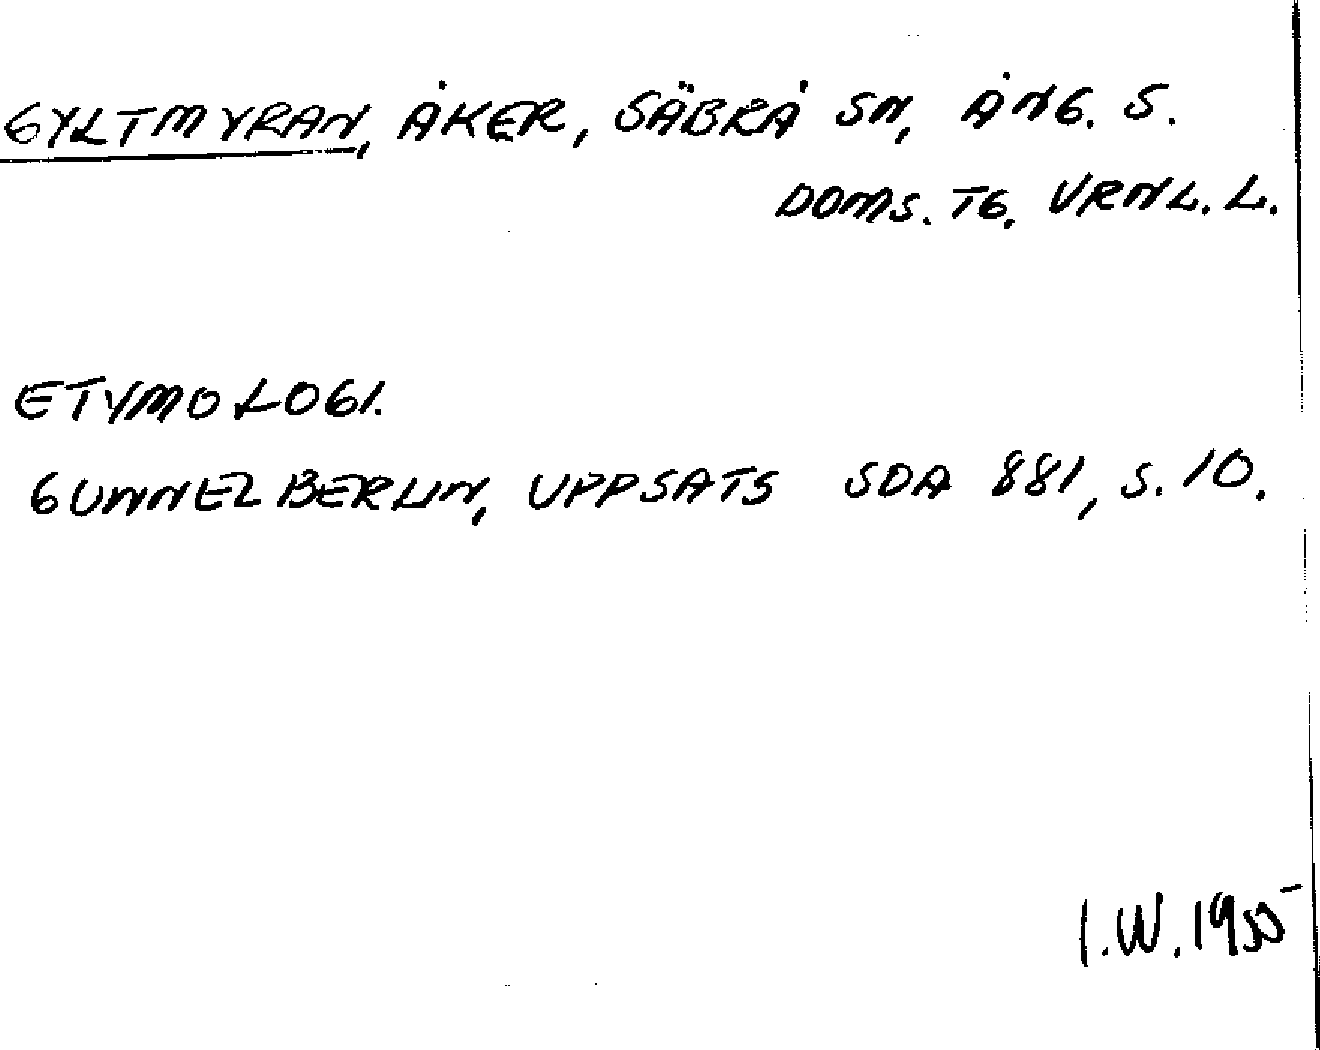 GYLTMYRAN, ÅKER, SÄBRÅ SN, ÅNG. S.
DOMS. TG. VRNL. L.
ETYMOLOGI.
GUNNEL BERLIN, UPPSATS SOA 881, S. 10.
I.W. 1955